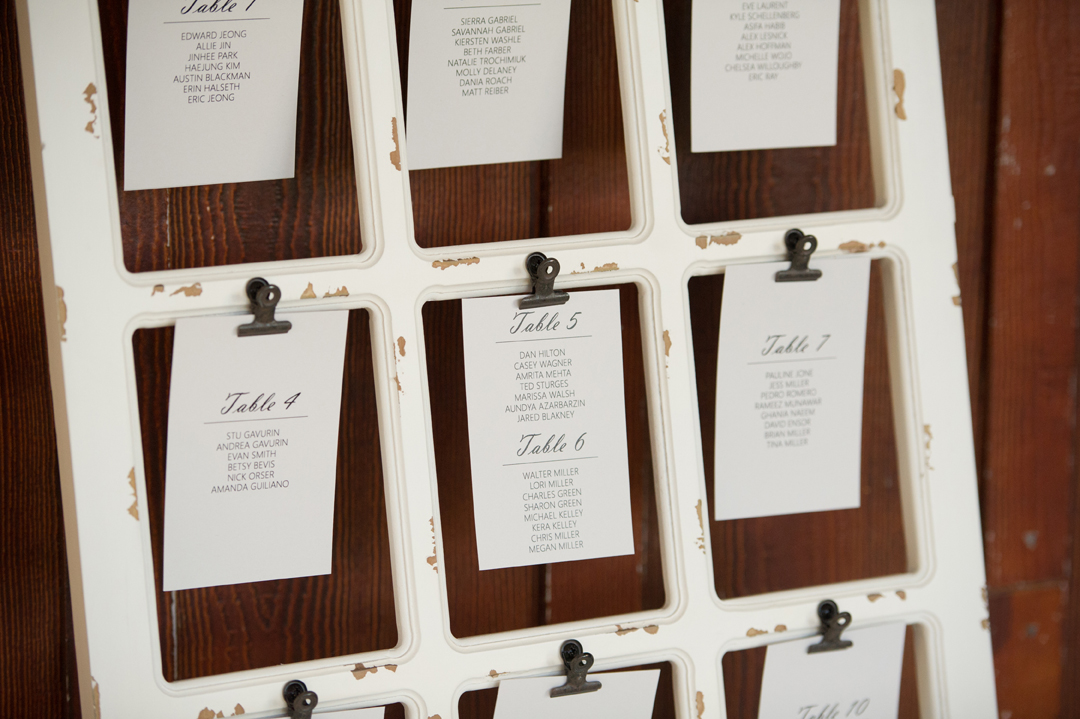 Table 1
EDWARD JEONG
ALLIE JIN
JINHEE PARK
HAEJUNG KIM
AUSTIN BLACKMAN
ERIN HALSETH
ERIC JEONG
SIERRA GABRIEL
SAVANNAH GABRIEL
KIERSTEN WASHLE
BETH FARBER
NATALIE TROCHIMIUK
MOLLY DELANEY
DANIA ROACH
MATT REIBER
EVE LAURENT
KYLE SCHELLENBERG
ASIFA HABIB
ALEX LESNICK
ALEX HOFFMAN
MICHELLE WOJO
CHELSEA WILLOUGHBY
ERIC RAY
Table 4
STU GAVURIN
ANDREA GAVURIN
EVAN SMITH
BETSY BEVIS
NICK ORSER
AMANDA GUILIANO
Table 5
DAN HILTON
CASEY WAGNER
AMRITA MEHTA
TED STURGES
MARISSA WALSH
AUNDYA AZARBARZIN
JARED BLAKNEY
Table 6
WALTER MILLER
LORI MILLER
CHARLES GREEN
SHARON GREEN
MICHAEL KELLEY
KERA KELLEY
CHRIS MILLER
MEGAN MILLER
Table 7
PAULINE JONE
JESS MILLER
PEDRO ROMERO
RAMEEZ MUNAWAR
GHANIA NAEEM
DAVID ENSOR
BRIAN MILLER
TINA MILLER
Table 10